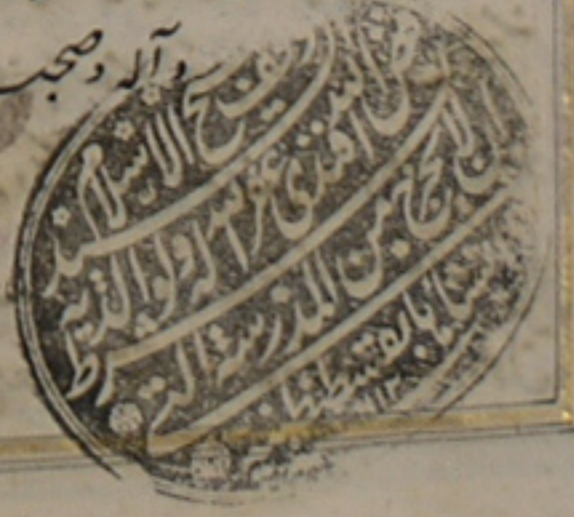 وآله وصحبه
وقف شيخ الاسلام السيد
فيض الله افندى غفر الله له ولوالديه بشرط
ان لا يخرج من المدرسة التى
انشأها بقسطنطينية